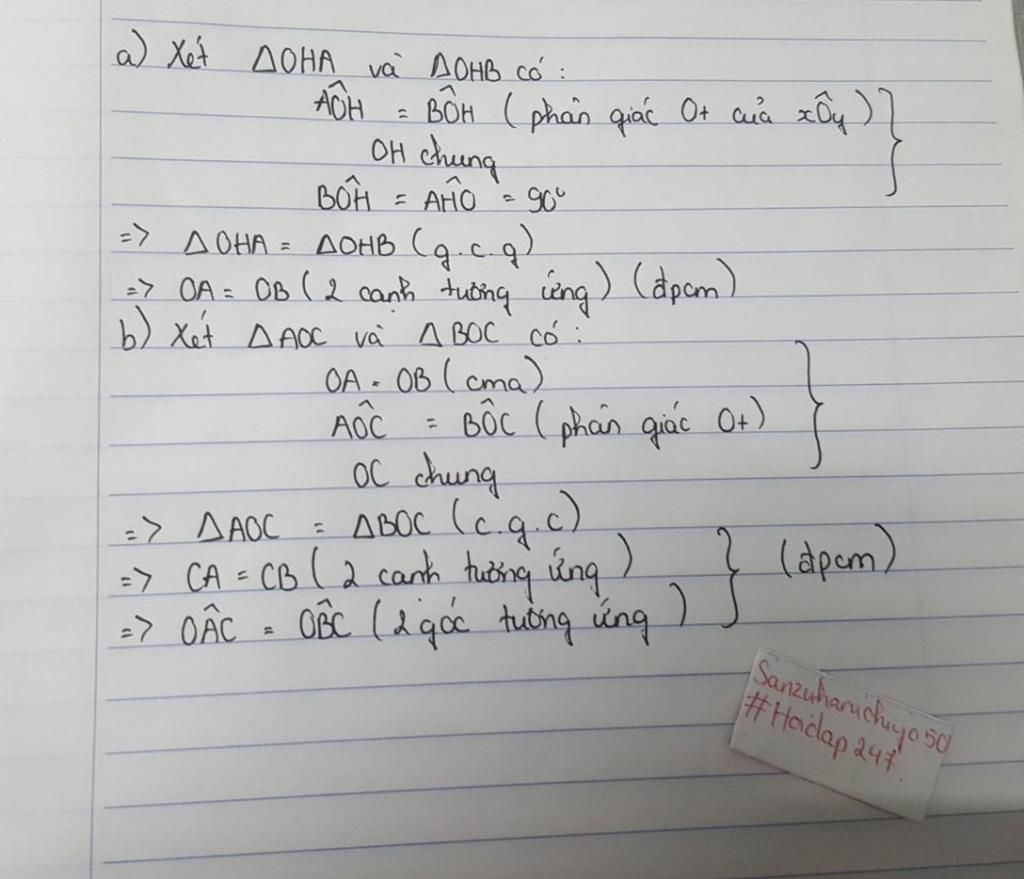 a) Xét ΔOHA và ΔOHB có:
AÔH = BÔH (phân giác Ot của xÔy)
OH chung
BÔH = AĤO = 90°
=> ΔOHA = ΔOHB (g.c.g)
=> OA = OB (2 cạnh tương ứng) (đpcm)
b) Xét ΔAOC và ΔBOC có:
OA = OB (cma)
AÔC = BÔC (phân giác Ot)
OC chung
=> ΔAOC = ΔBOC (c.g.c)
=> CA = CB (2 cạnh tương ứng)
=> OÂC = OB̂C (2 góc tương ứng) (đpcm)
Sanzuharuchiyo50
#Hoidap247.